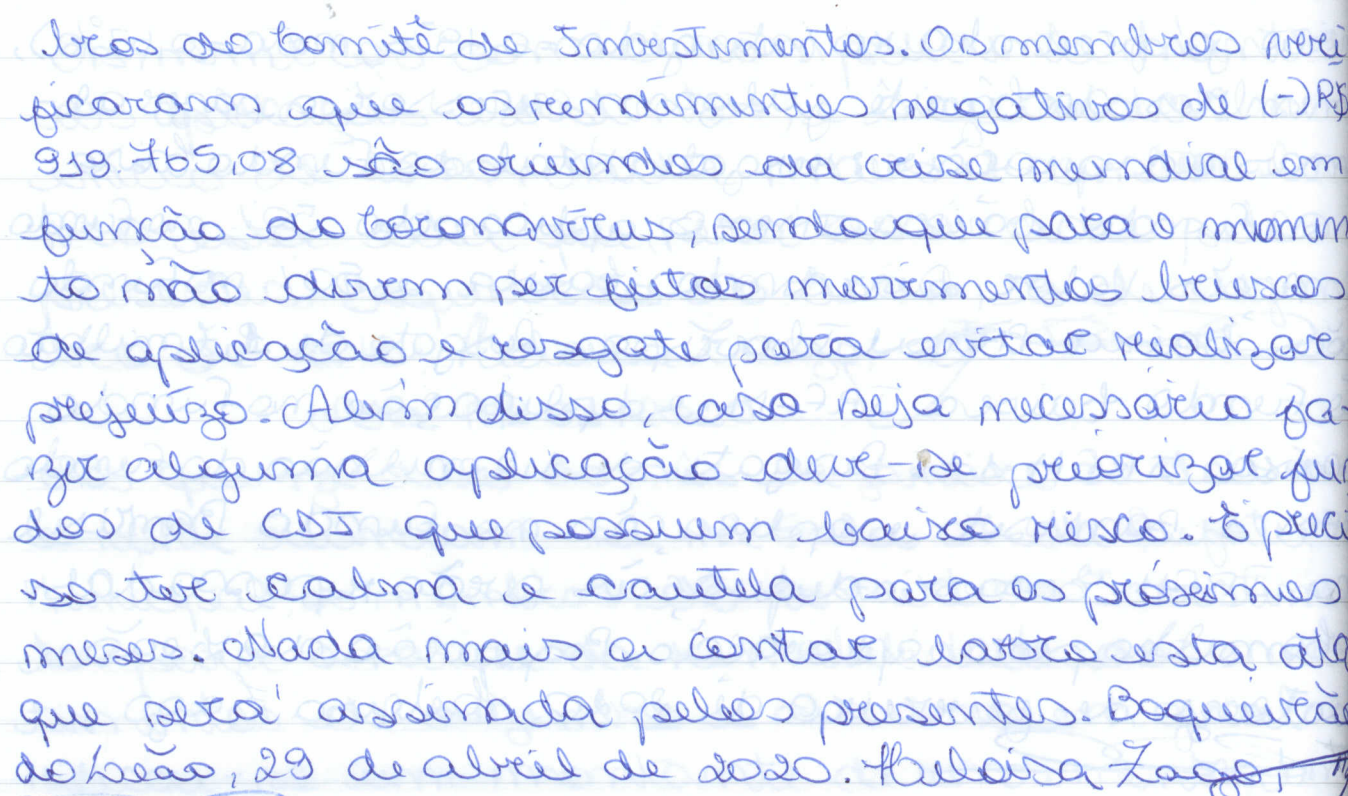 bros do Comitê de Investimentos. Os membros veri
ficaram que os rendimentos negativos de (-) R$
919.765,08 são oriundos da crise mundial em
função do Coronavírus, sendo que para o momen
to não devem ser feitos movimentos bruscos
de aplicação e resgate para evitar realizar
prejuízo. Além disso, caso seja necessário fa-
zer alguma aplicação deve-se priorizar fun
dos de CDI que possuem baixo risco. É preci
so ter calma e cautela para os próximos
meses. Nada mais a contar lavro esta ata
que será assinada pelos presentes. Boqueirão
do Leão, 29 de abril de 2020. Heloisa Zago,